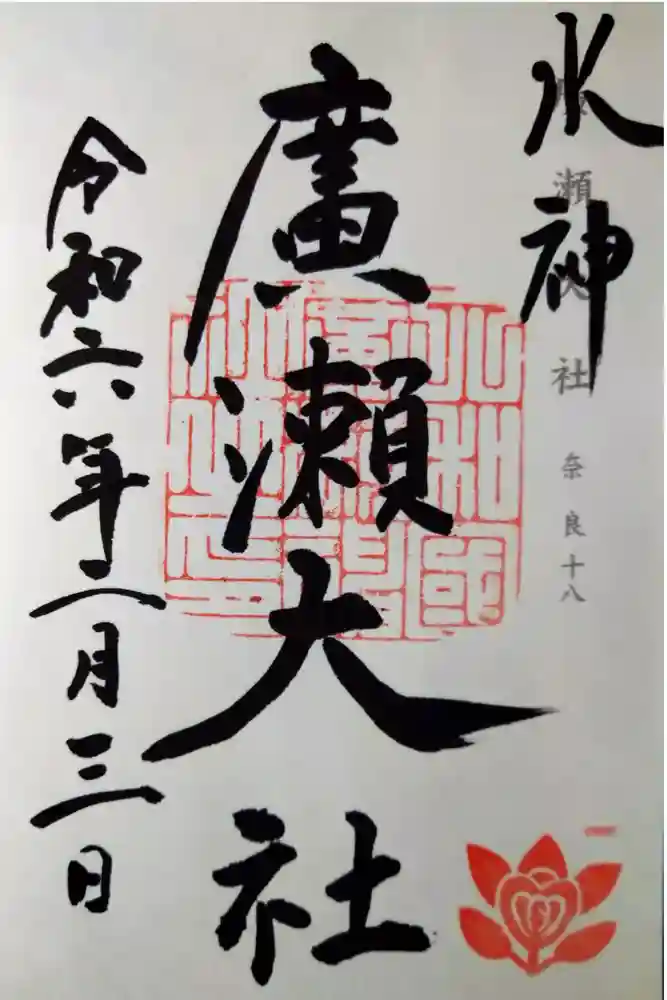 水神
瀬 社 奈良十八
廣瀬大社
令和六年二月三日